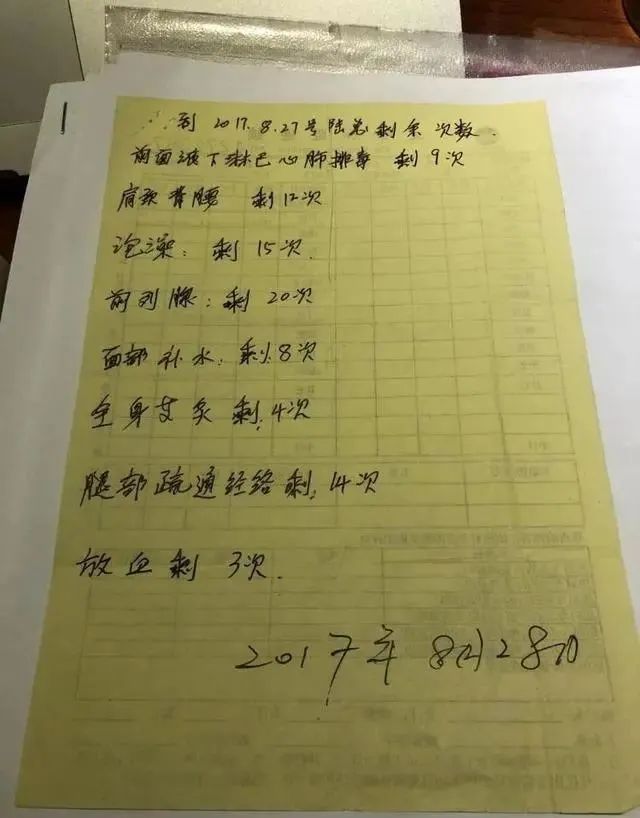 到 2017.8.27号陆总剩余次数.
前面液下淋巴心肺排毒 剩9次
肩颈背腰 剩12次
泡澡: 剩 15次.
前列腺: 剩 20次
面部补水: 剩:8次
全身艾灸剩:4次
腿部疏通经络剩:14次
放血剩 3次.
2017年8月28日